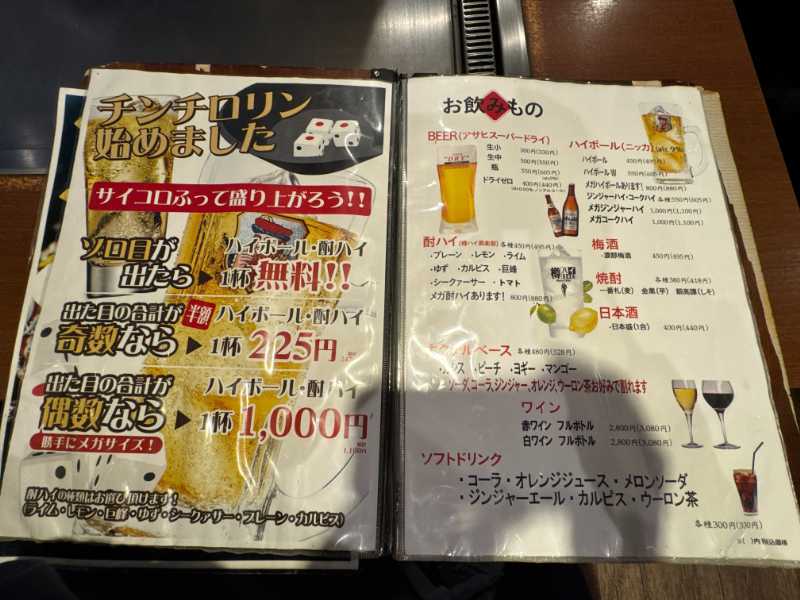 チンチロリン
始めました
サイコロふって盛り上がろう!!
ゾロ目が
出たら
ハイボール・酎ハイ
1杯 無料!!
出た目の合計が
奇数なら
半額 ハイボール・酎ハイ
1杯 225円
出た目の合計が
偶数なら
勝手にメガサイズ!
ハイボール・酎ハイ
1杯 1,000円
酎ハイの種類はお選び頂けます!
(ライム・レモン・巨峰・ゆず・シークァサー・プレーン・カルピス)
お飲みもの
BEER(アサヒスーパードライ)
生小 300円(330円)
生中 500円(550円)
瓶 550円(605円)
ドライゼロ 400円(440円)
ハイボール(ニッカ) alc 9%
ハイボール 450円(495円)
ハイボールW 550円(605円)
メガハイボールあります! 800円(880円)
ジンジャーハイ・コークハイ 各種550円(605円)
メガジンジャーハイ 1,000円(1,100円)
メガコークハイ 1,000円(1,100円)
酎ハイ(樽ハイ倶楽部) 各種450円(495円)
・プレーン ・レモン ・ライム
・ゆず ・カルピス ・巨峰
・シークァーサー ・トマト
メガ酎ハイあります! 800円(880円)
梅酒
・濃醇梅酒 450円(495円)
焼酎 各種380円(418円)
一番札(麦) 金黒(芋) 鍛高譚(しそ)
日本酒
・日本盛(1合) 400円(440円)
ベース 各種480円(528円)
・ピーチ ・ヨギー ・マンゴー
ソーダ、コーラ、ジンジャー、オレンジ、ウーロン茶お好みで割れます
ワイン
赤ワイン フルボトル 2,800円(3,080円)
白ワイン フルボトル 2,800円(3,080円)
ソフトドリンク
・コーラ・オレンジジュース・メロンソーダ
・ジンジャーエール・カルピス・ウーロン茶
各種300円(330円)
※( )内税込価格